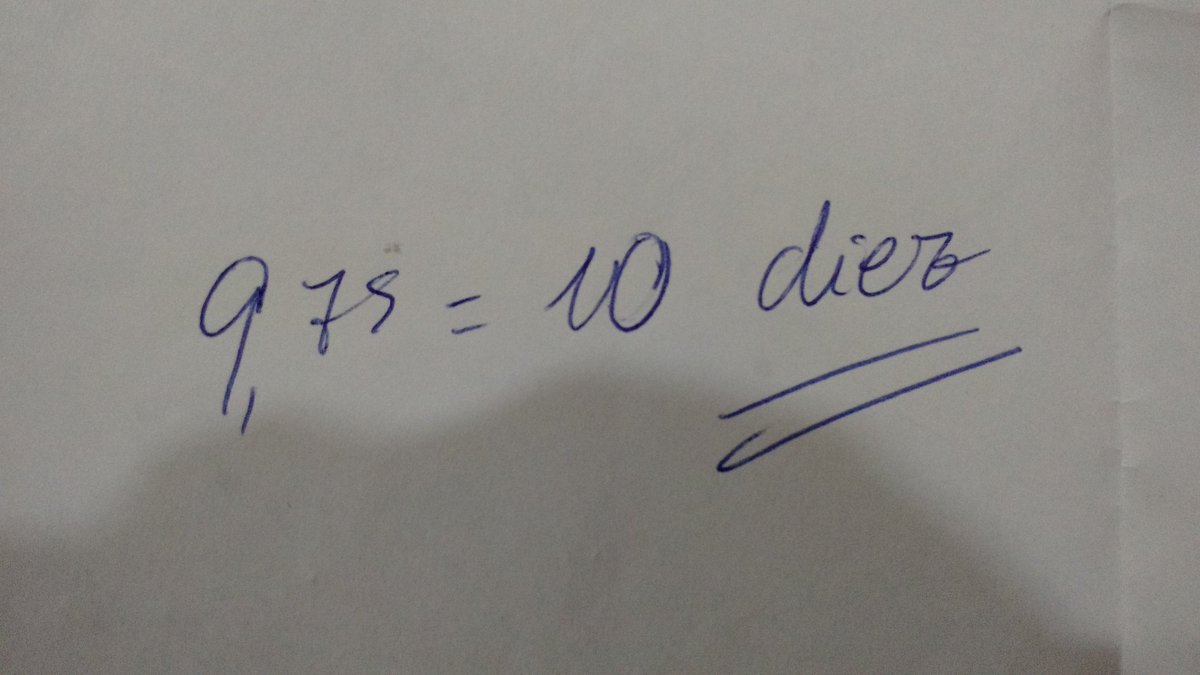 9,75 = 10 diez